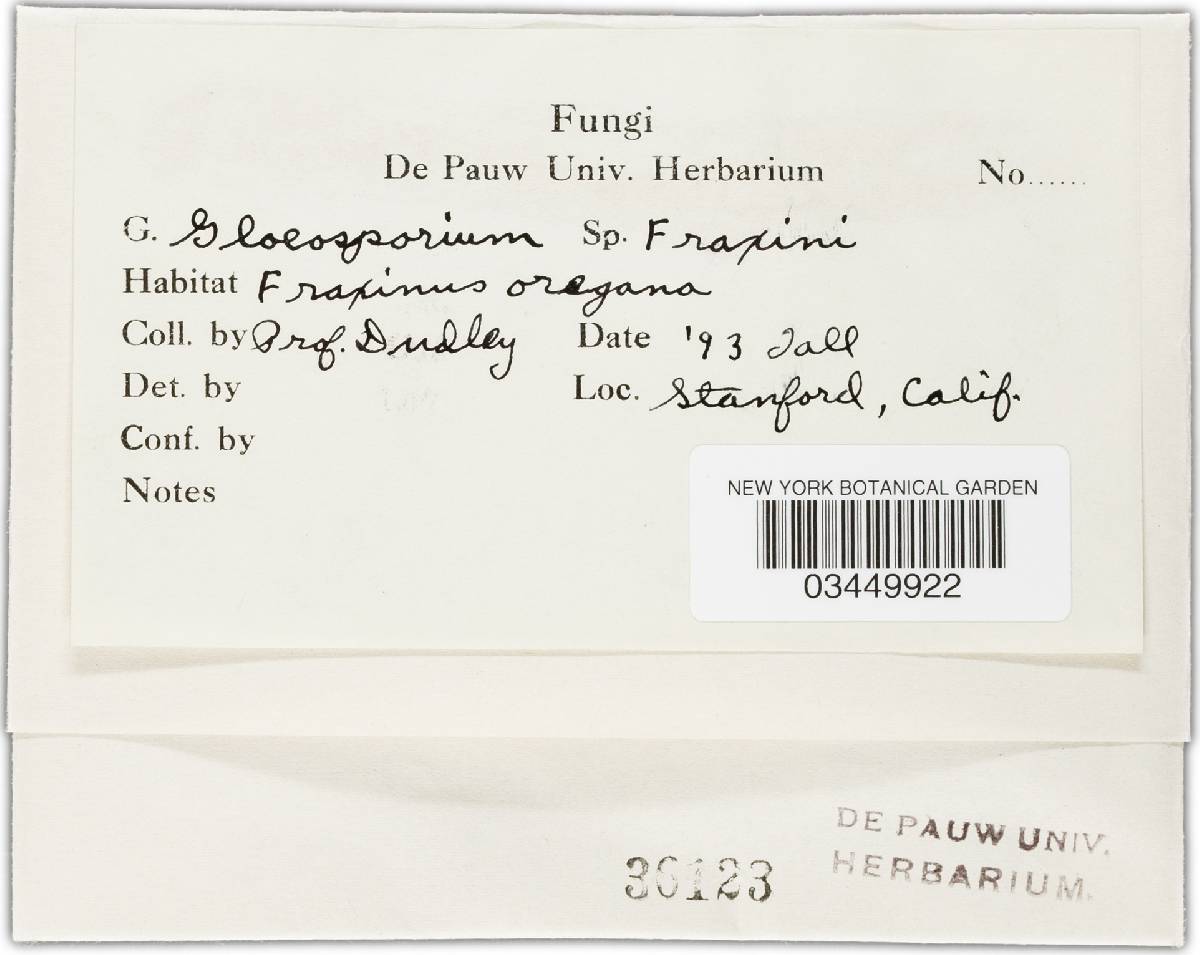 Fungi
De Pauw Univ. Herbarium No......
G. Gloeosporium Sp. Fraxini
Habitat Fraxinus oregana
Coll. by Prof. Dudley Date '93 Fall
Det. by Loc. Stanford, Calif.
Conf. by
Notes
NEW YORK BOTANICAL GARDEN
03449922
DE PAUW UNIV.
HERBARIUM.
36123